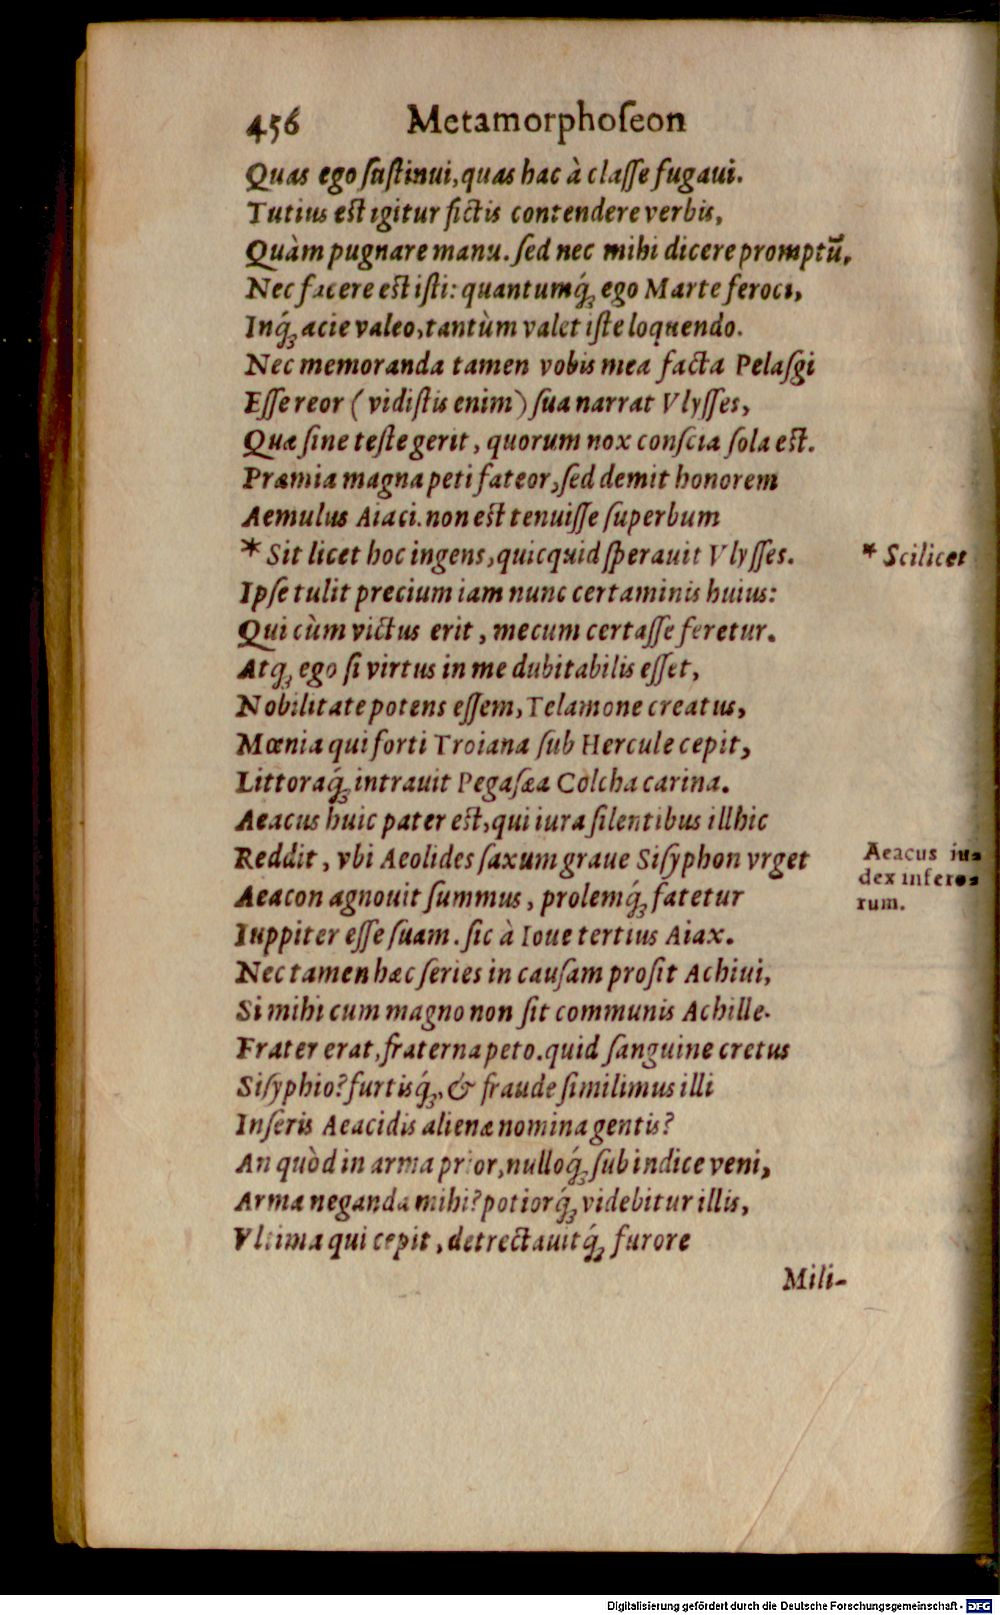 456 Metamorphoſeon
Quas ego ſuſtinui, quas hac à claſſe fugaui.
Tutius est igitur fictis contendere verbis,
Quàm pugnare manu. ſed nec mihi dicere promptū,
Nec facere est iſti: quantumq́; ego Marte feroci,
Inq́; acie valeo, tantùm valet iſte loquendo.
Nec memoranda tamen vobis mea facta Pelaſgi
Eſſe reor (vidiſtis enim) ſua narrat Vlyſſes,
Quæ ſine teſte gerit, quorum nox conſcia ſola est.
Præmia magna peti fateor, ſed demit honorem
Aemulus Aiaci. non est tenuiſſe ſuperbum
* Sit licet hoc ingens, quicquid ſperauit Vlyſſes.
* Scilicet
Ipſe tulit precium iam nunc certaminis huius:
Qui cùm victus erit, mecum certaſſe feretur.
Atq; ego ſi virtus in me dubitabilis eſſet,
Nobilitate potens eſſem, Telamone creatus,
Mœnia qui forti Troiana ſub Hercule cepit,
Littoraq́; intrauit Pegaſæa Colcha carina.
Aeacus huic pater est, qui iura ſilentibus illhic
Reddit, vbi Aeolides ſaxum graue Siſyphon vrget
Aeacus iu-
dex infero-
rum.
Aeacon agnouit ſummus, prolemq́; fatetur
Iuppiter eſſe ſuam. ſic à Ioue tertius Aiax.
Nec tamen hæc ſeries in cauſam proſit Achiui,
Si mihi cum magno non ſit communis Achille.
Frater erat, fraterna peto. quid ſanguine cretus
Siſyphio? furtisq́;, & fraude ſimilimus illi
Inſeris Aeacidis alienæ nomina gentis?
An quòd in arma prior, nulloq́; ſub indice veni,
Arma neganda mihi? potiorq́; videbitur illis,
Vltima qui cepit, detrectauitq́; furore
Mili-
Digitalisierung gefördert durch die Deutsche Forschungsgemeinschaft - DFG